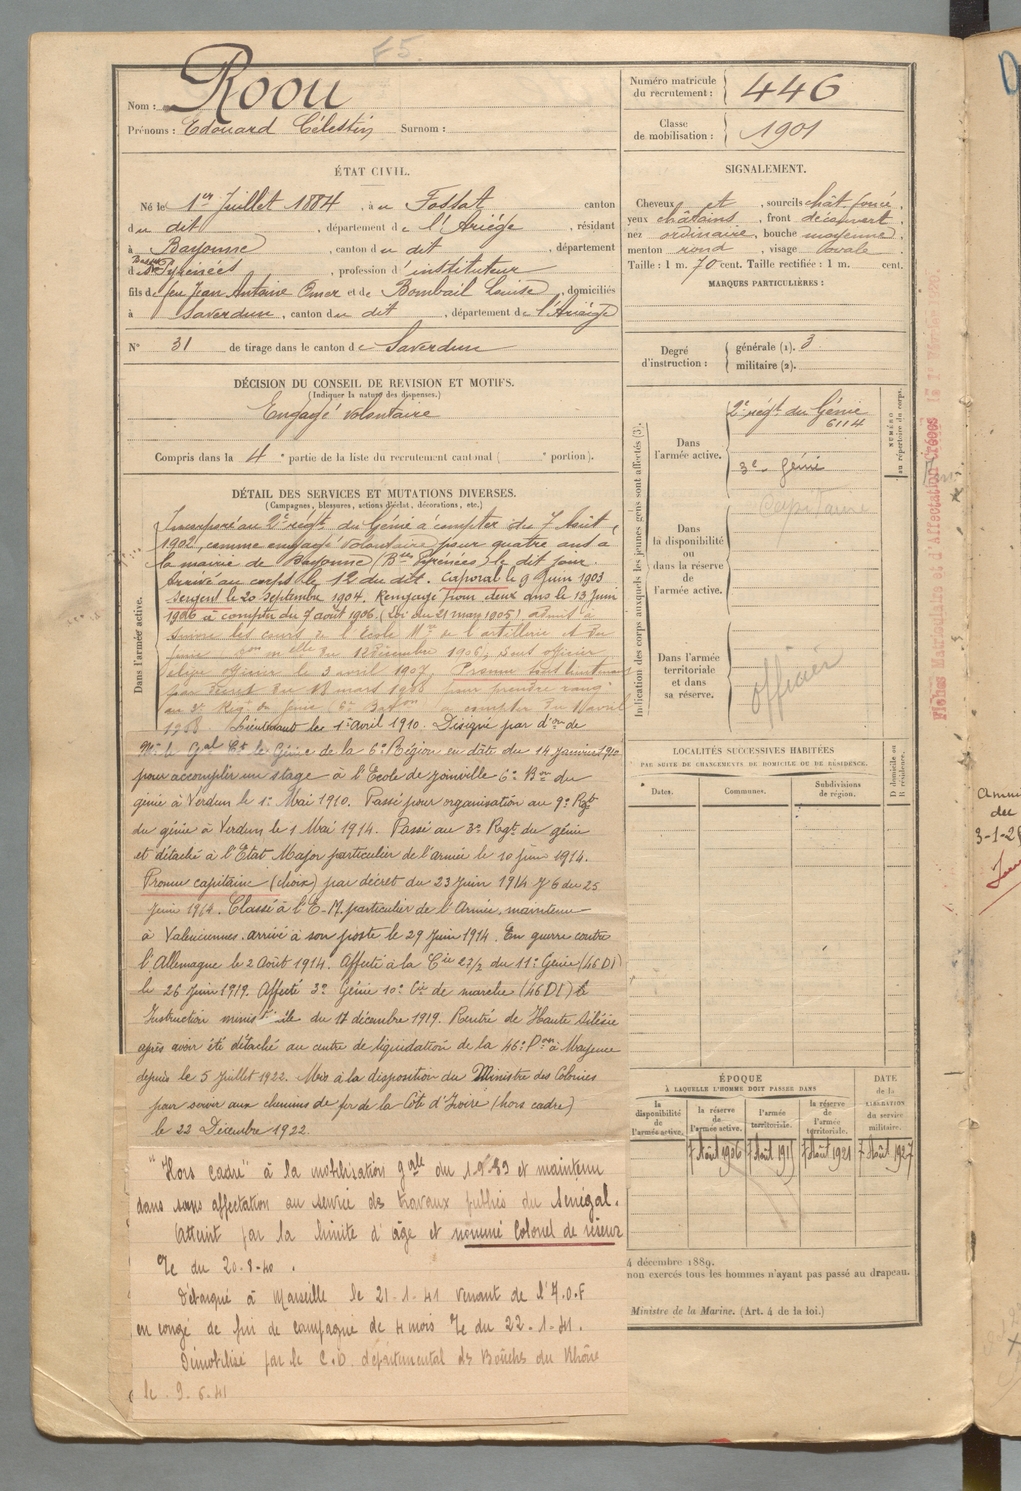 F5
Nom : Roou
Prénoms : Edouard Célestin Surnom :
Numéro matricule du recrutement : 446
Classe de mobilisation : 1901
ÉTAT CIVIL.
Né le 1er Juillet 1884, à u Fossat canton
du dit, département de l'Ariège, résidant
à Bayonne, canton du dit, département
d Basses Pyrénées, profession d'instituteur
fils de feu Jean Antoine Omer et de Bombail Louise, domiciliés
à Saverdun, canton du dit, département de l'Ariège
N° 31 de tirage dans le canton de Saverdun
DÉCISION DU CONSEIL DE REVISION ET MOTIFS.
(Indiquer la nature des dispenses.)
Engagé volontaire
Compris dans la 4e partie de la liste du recrutement cantonal ( e portion).
SIGNALEMENT.
Cheveux et, sourcils chât foncé,
yeux châtains, front découvert,
nez ordinaire, bouche moyenne,
menton rond, visage ovale.
Taille : 1 m. 70 cent. Taille rectifiée : 1 m. cent.
MARQUES PARTICULIÈRES :
Degré d'instruction : générale (1). 3
militaire (2).
DÉTAIL DES SERVICES ET MUTATIONS DIVERSES.
(Campagnes, blessures, actions d'éclat, décorations, etc.)
Dans l'armée active.
Incorporé au 2e régt du Génie à compter du 7 Août
1902, comme engagé volontaire pour quatre ans à
la mairie de Bayonne (Bses Pyrénées) le dit jour.
Arrivé au corps le 12 du dit. Caporal le 9 Juin 1903
Sergent le 20 Septembre 1904. Rengagé pour deux ans le 13 Juin
1906 à compter du 7 août 1906. (Loi du 21 mars 1905) admis à
suivre les cours de l'Ecole Mre de l'artillerie et du
génie on mlle du 12 Décembre 1906, sous officier
élève officier le 3 avril 1907. Promu sous lieutenant
par décret du 18 mars 1908 pour prendre rang
au 3e Régt du Génie (6e Baton) à compter du avril
1908 Lieutenant le 1er avril 1910. Désigné par d'on de
Mr le Gal Ct le Génie de la 6e Région en date du 14 janvier 1910
pour accomplir un stage à l'Ecole de Joinville 6e Bon du
génie à Verdun le 1er Mai 1910. Passé pour organisation au 9e Rgt
du génie à Verdun le 1 Mai 1914. Passé au 3e Regt du génie
et détaché à l'Etat Major particulier de l'armée le 10 juin 1914.
Promu capitaine (choix) par décret du 23 Juin 1914 J 6 du 25
Juin 1914. Classé à l'E-M. particulier de l'Armée, maintenu
à Valenciennes. arrivé à son poste le 29 Juin 1914. En guerre contre
l'Allemagne le 2 Août 1914. Affecté à la Cie 27/2 du 11e Génie (46 DI)
le 26 Juin 1919. Affecté 3e Génie 10e Cie de marche (46 DI) le
Instruction ministérielle du 17 décembre 1919. Rentré de Haute Silésie
après avoir été détaché au centre de liquidation de la 46e Don à Mayence
depuis le 5 Juillet 1922. Mis à la disposition du Ministre des Colonies
pour servir aux chemins de fer de la Côte d'Ivoire (hors cadre)
le 22 Décembre 1922.
"Hors cadre" à la mobilisation gale du 1-9-39 et maintenu
dans sans affectation au service des travaux publics du Sénégal.
Atteint par la limite d'âge et nommé Colonel de réserve
Ie du 20-8-40.
Débarqué à Marseille le 21-1-41 venant de l'A.O.F
en congé de fin de campagne de 4 mois Ie du 22-1-41.
Démobilisé par le C.D. départemental des Bouches du Rhône
le 9-6-41
Indication des corps auxquels les jeunes gens sont affectés (3).
Dans l'armée active.
2e régt du Génie
6114
3e Génie
NUMÉRO au répertoire du corps.
Dans la disponibilité ou dans la réserve de l'armée active.
Capitaine
Dans l'armée territoriale et dans sa réserve.
officier
LOCALITÉS SUCCESSIVES HABITÉES
PAR SUITE DE CHANGEMENTS DE DOMICILE OU DE RÉSIDENCE.
Dates. Communes. Subdivisions de région. D domicile ou R résidence.
ÉPOQUE
À LAQUELLE L'HOMME DOIT PASSER DANS
la disponibilité de l'armée active. la réserve de l'armée active. l'armée territoriale. la réserve de l'armée territoriale.
DATE de la LIBÉRATION du service militaire.
7 Août 1906 7 Août 1919 7 Août 1921 7 Août 1927
4 décembre 1889.
non exercés tous les hommes n'ayant pas passé au drapeau.
Ministre de la Marine. (Art. 4 de la loi.)
Fiches Matriculaire et d'Affectation Créées le 1er Février 1926
du
3-1-2